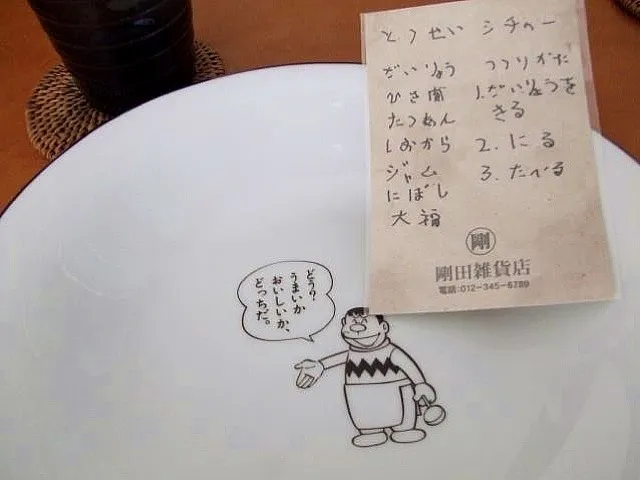 とくせい シチュー
ざいりょう
ひき肉
たくあん
しおから
ジャム
にぼし
大福
つくりかた
1.ざいりょうを
きる
2.にる
3.たべる
剛
剛田雑貨店
電話:012-345-6789
どう?
うまいか
おいしいか、
どっちだ。